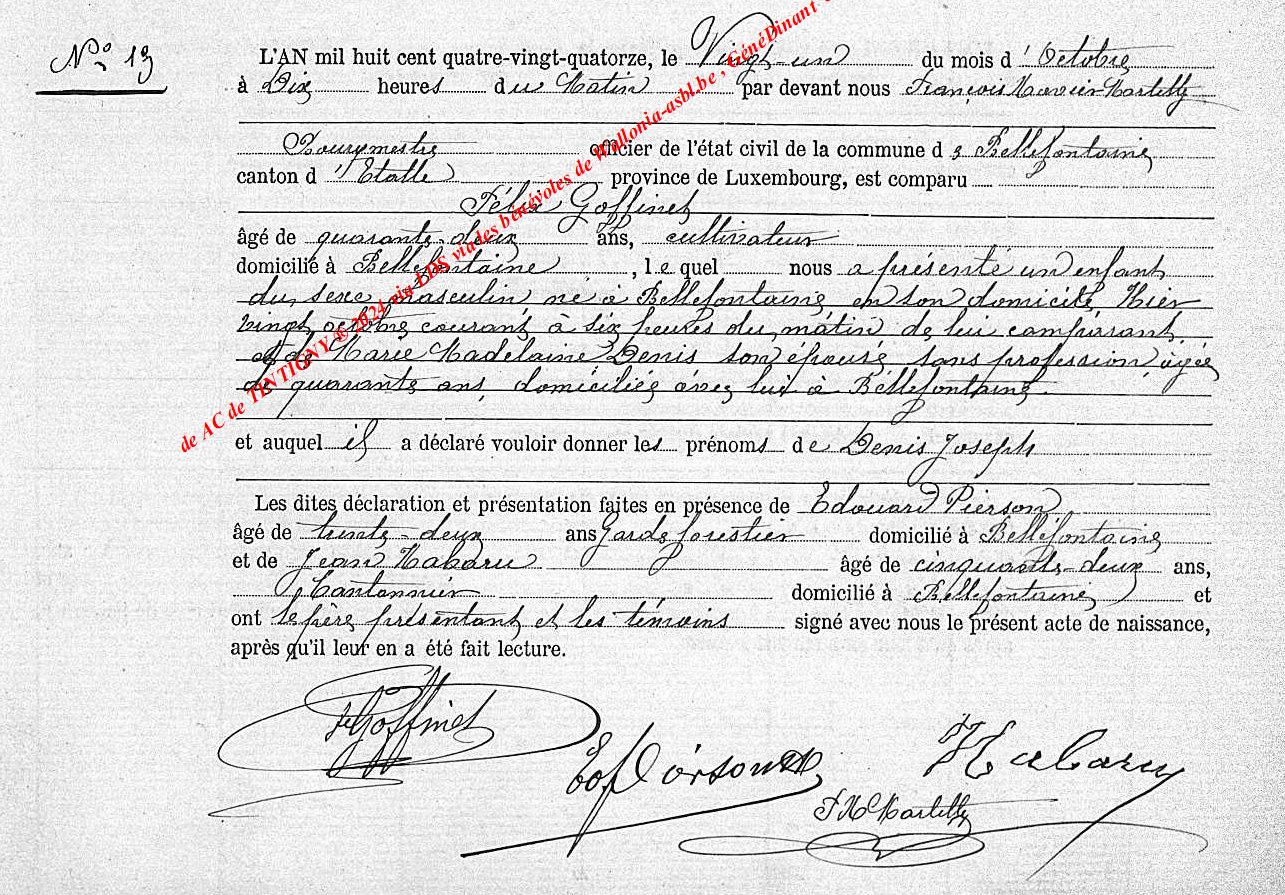 N° 13
L'AN mil huit cent quatre-vingt-quatorze, le Vingt-un du mois d'Octobre
à Dix heures du Matin par devant nous François Xavier Martilly
Bourgmestre officier de l'état civil de la commune de Bellefontaine
canton d'Etalle province de Luxembourg, est comparu
Félix Goffinet
âgé de quarante-deux ans, cultivateur
domicilié à Bellefontaine, lequel nous a présenté un enfant
du sexe masculin né à Bellefontaine en son domicile, Hier
vingt octobre courant à six heures du matin de lui comparant
et de Marie Madelaine Denis son épouse sans profession âgée
de quarante ans, domiciliée avec lui à Bellefontaine.
et auquel il a déclaré vouloir donner les prénoms de Denis Joseph
Les dites déclaration et présentation faites en présence de Edouard Pierson
âgé de trente-deux ans Garde forestier domicilié à Bellefontaine
et de Jean Habaru âgé de cinquante-deux ans,
Cantonnier domicilié à Bellefontaine et
ont le père présentant et les témoins signé avec nous le présent acte de naissance,
après qu'il leur en a été fait lecture.
Goffinet
Pierson
Habaru
F X Martilly
de AC de TINTIGNY ® 2024 via LDS via des bénévoles de Wallonia-asbl.be , GénéDinant